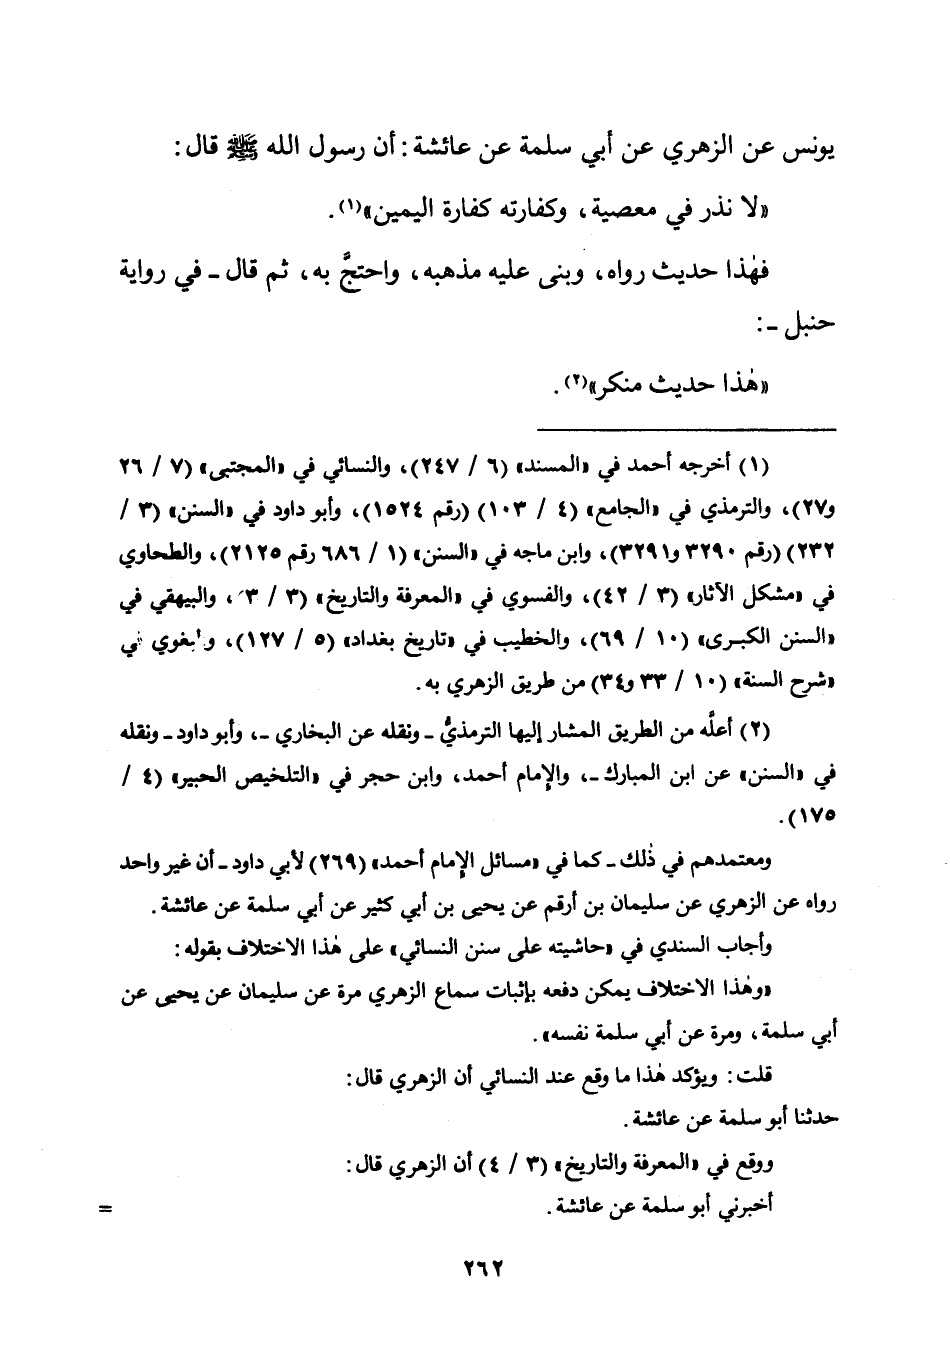 يونس عن الزهري عن أبي سلمة عن عائشة: أن رسول الله ﷺ قال:
«لا نذر في معصية، وكفارته كفارة اليمين»(١).
فهٰذا حديث رواه، وبنى عليه مذهبه، واحتجَّ به، ثم قال ـ في رواية
حنبل ـ:
«هٰذا حديث منكر»(٢).
(١) أخرجه أحمد في «المسند» (٦ / ٢٤٧)، والنسائي في «المجتبى» (٧ / ٢٦
و٢٧)، والترمذي في «الجامع» (٤ / ١٠٣) (رقم ١٥٢٤)، وأبو داود في «السنن» (٣ /
٢٣٢) (رقم ٣٢٩٠ و٣٢٩١)، وابن ماجه في «السنن» (١ / ٦٨٦ رقم ٢١٢٥)، والطحاوي
في «مشكل الآثار» (٣ / ٤٢)، والفسوي في «المعرفة والتاريخ» (٣ / ٣، والبيهقي في
«السنن الكبرى» (١٠ / ٦٩)، والخطيب في «تاريخ بغداد» (٥ / ١٢٧)، والبغوي في
«شرح السنة» (١٠ / ٣٣ و٣٤) من طريق الزهري به.
(٢) أعلَّه من الطريق المشار إليها الترمذيُّ ـ ونقله عن البخاري ـ، وأبو داود ـ ونقله
في «السنن» عن ابن المبارك ـ، والإمام أحمد، وابن حجر في «التلخيص الحبير» (٤ /
١٧٥).
ومعتمدهم في ذٰلك ـ كما في «مسائل الإمام أحمد» (٢٦٩) لأبي داود ـ أن غير واحد
رواه عن الزهري عن سليمان بن أرقم عن يحيى بن أبي كثير عن أبي سلمة عن عائشة.
وأجاب السندي في «حاشيته على سنن النسائي» على هٰذا الاختلاف بقوله:
«وهٰذا الاختلاف يمكن دفعه بإثبات سماع الزهري مرة عن سليمان عن يحيى عن
أبي سلمة، ومرة عن أبي سلمة نفسه».
قلت: ويؤكد هٰذا ما وقع عند النسائي أن الزهري قال:
حدثنا أبو سلمة عن عائشة.
ووقع في «المعرفة والتاريخ» (٣ / ٤) أن الزهري قال:
أخبرني أبو سلمة عن عائشة.
=
٢٦٢